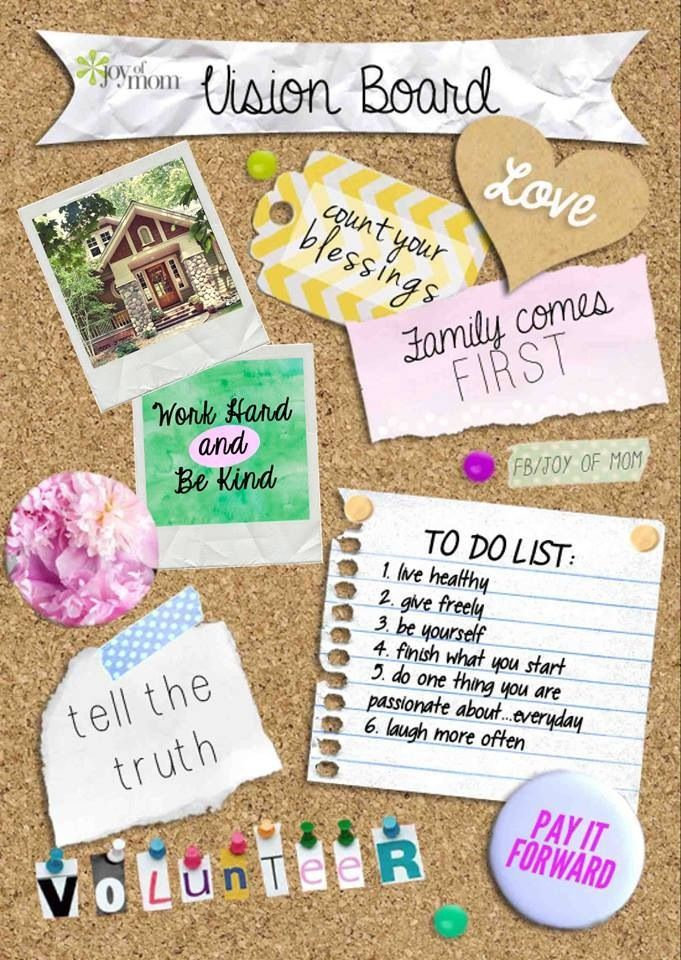 joy of
mom
Vision Board
Love
count your
blessings
Family comes
FIRST
Work Hard
and
Be Kind
FB/JOY OF MOM
TO DO LIST:
1. live healthy
2. give freely
3. be yourself
4. finish what you start
5. do one thing you are
passionate about...everyday
6. laugh more often
tell the
truth
PAY IT
FORWARD
VOLUNTEER